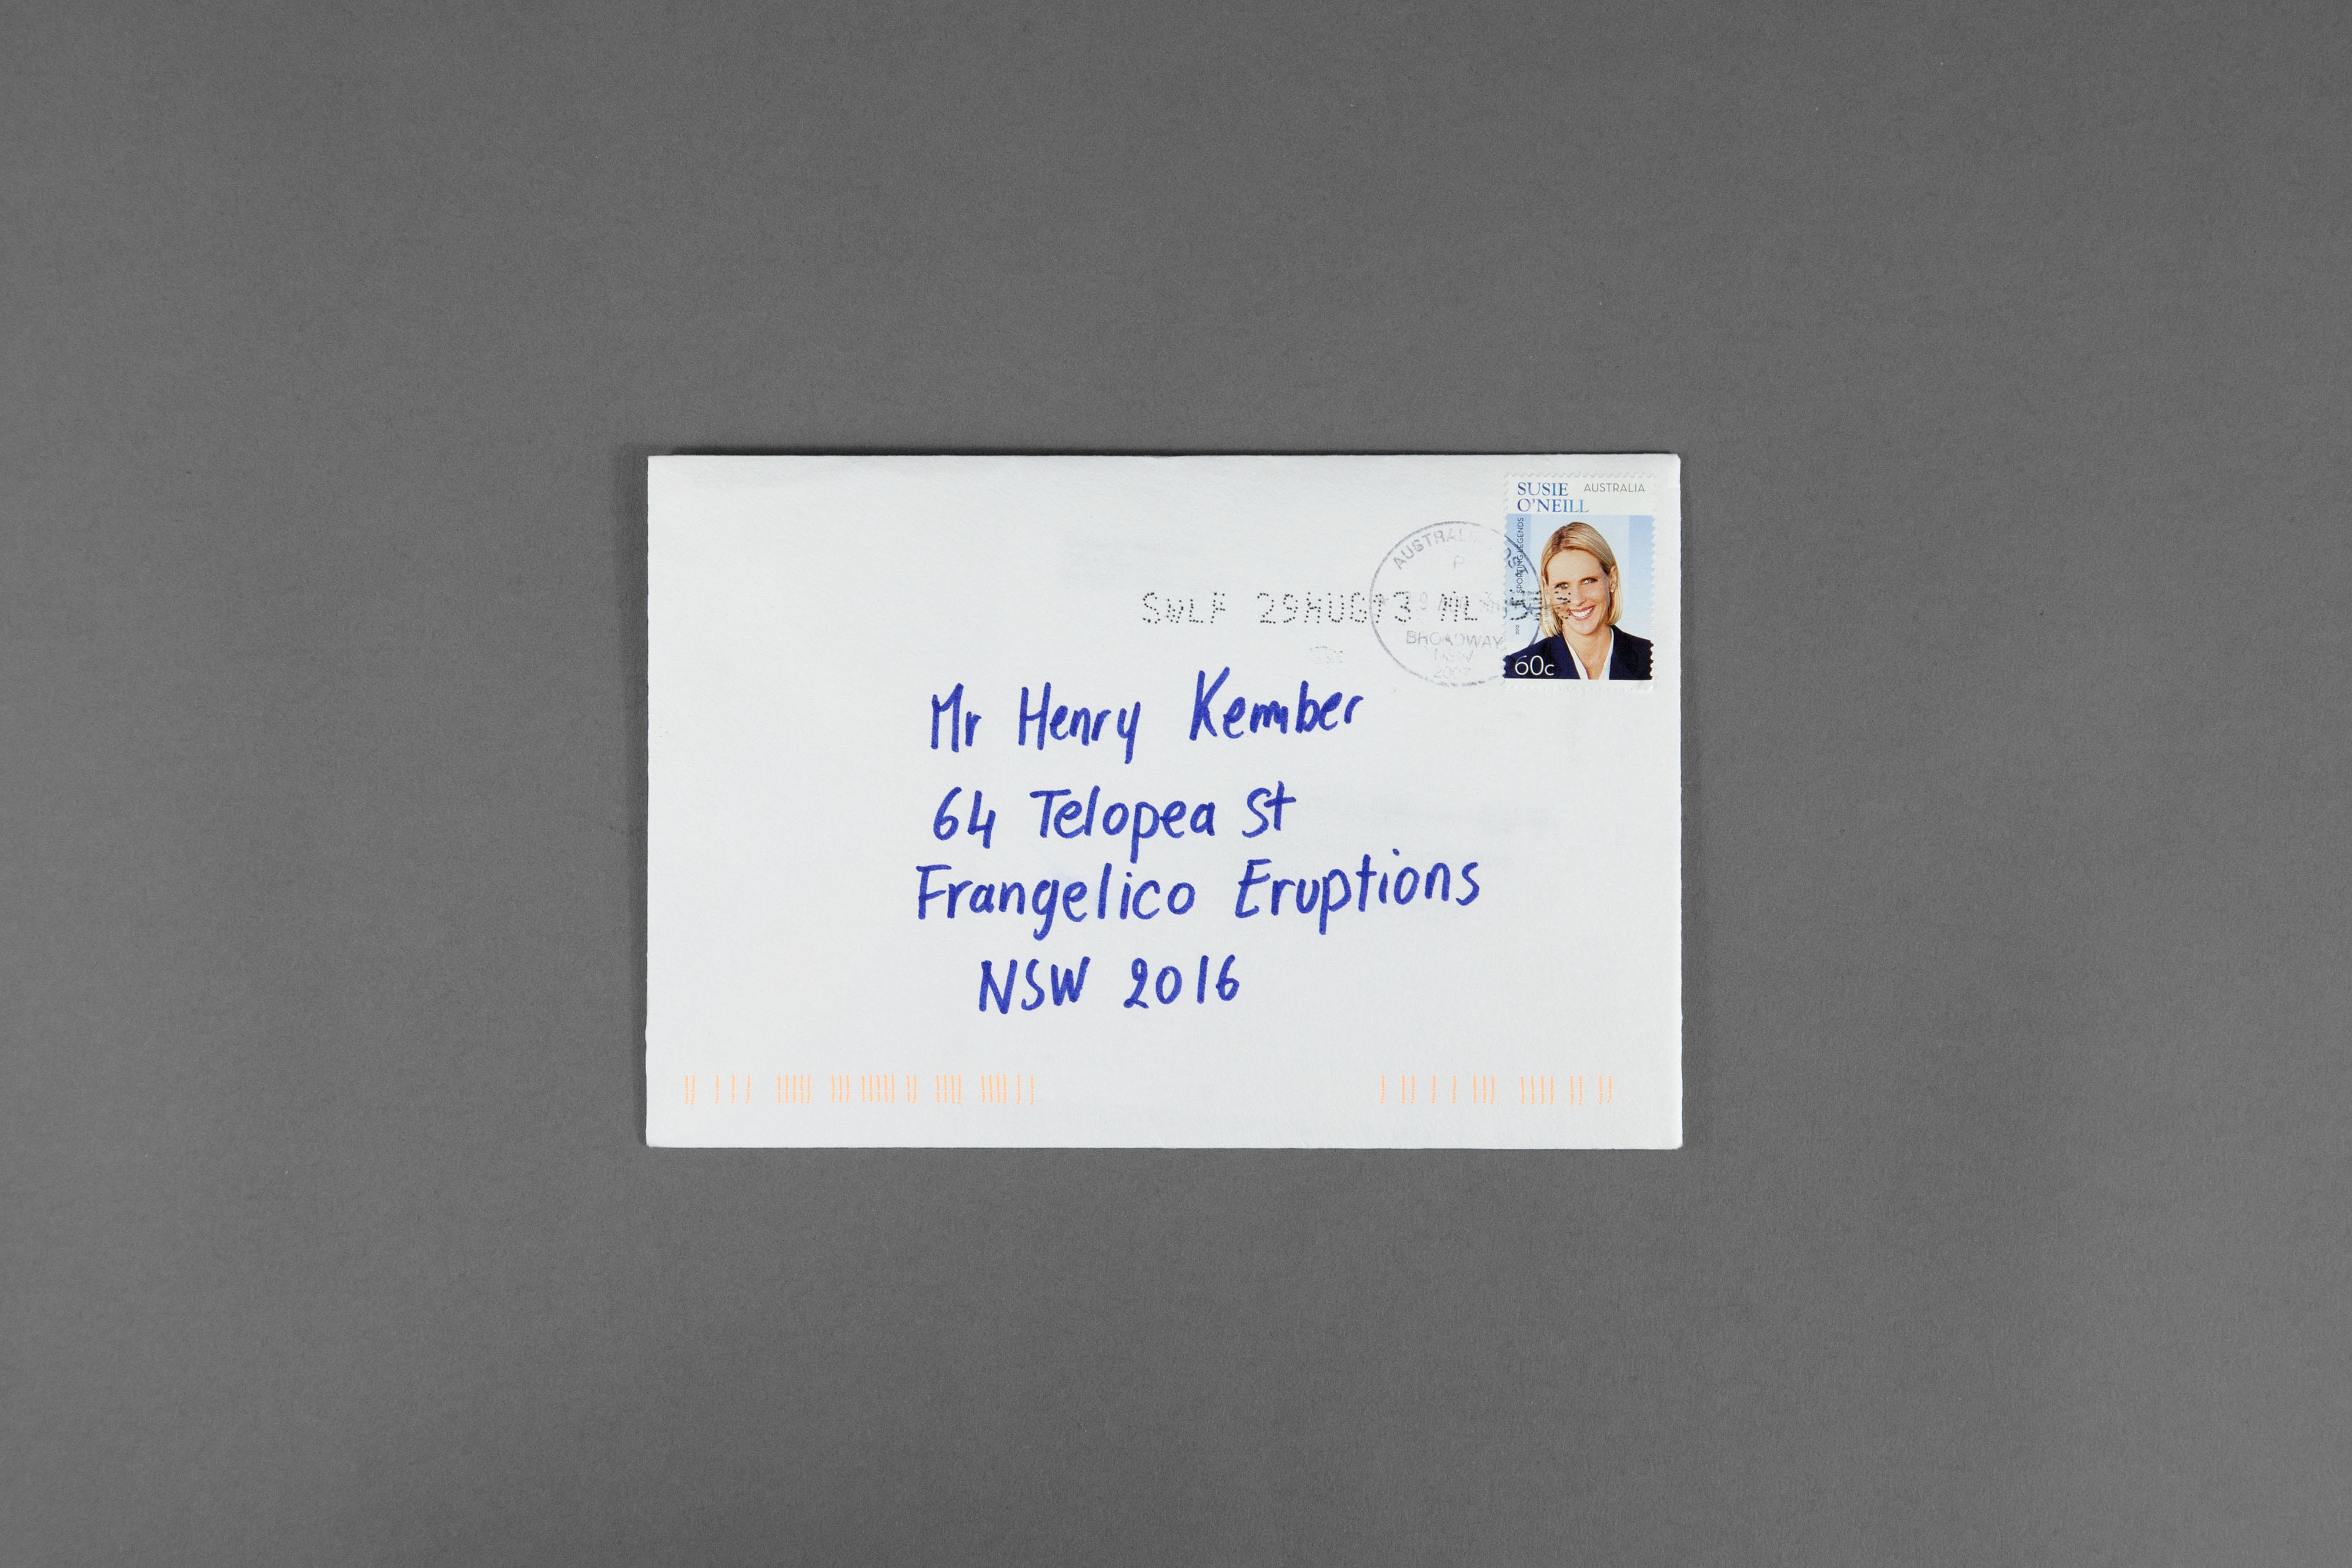 SUSIE AUSTRALIA
O'NEILL
SPORTING LEGENDS
60c
AUSTRALIA POST
P
BROADWAY
NSW
SWLF 29AUG13 ML
Mr Henry Kember
64 Telopea St
Frangelico Eruptions
NSW 2016